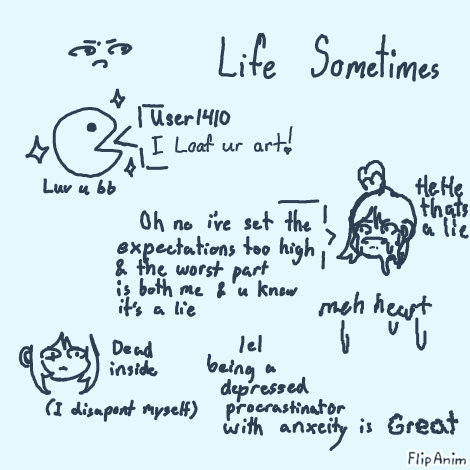 Life Sometimes
User1410
I Loaf ur art!
Luv u bb
HeHe
thats
a lie
Oh no i've set the
expectations too high
& the worst part
is both me & u know
it's a lie
meh heart
Dead
inside
(I disapont myself)
lel
being a
depressed
procrastinator
with anxeity is Great
FlipAnim